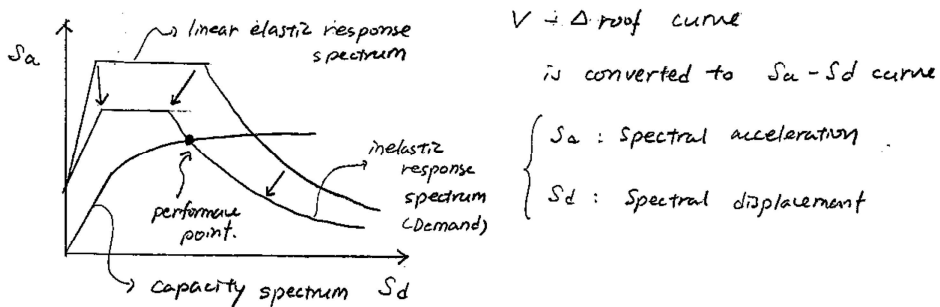 Sa
linear elastic response
spectrum
inelastic
response
spectrum
(Demand)
performace
point.
capacity spectrum
Sd
V - Δroof curve
is converted to Sa - Sd curve
Sa : Spectral acceleration
Sd : Spectral displacement